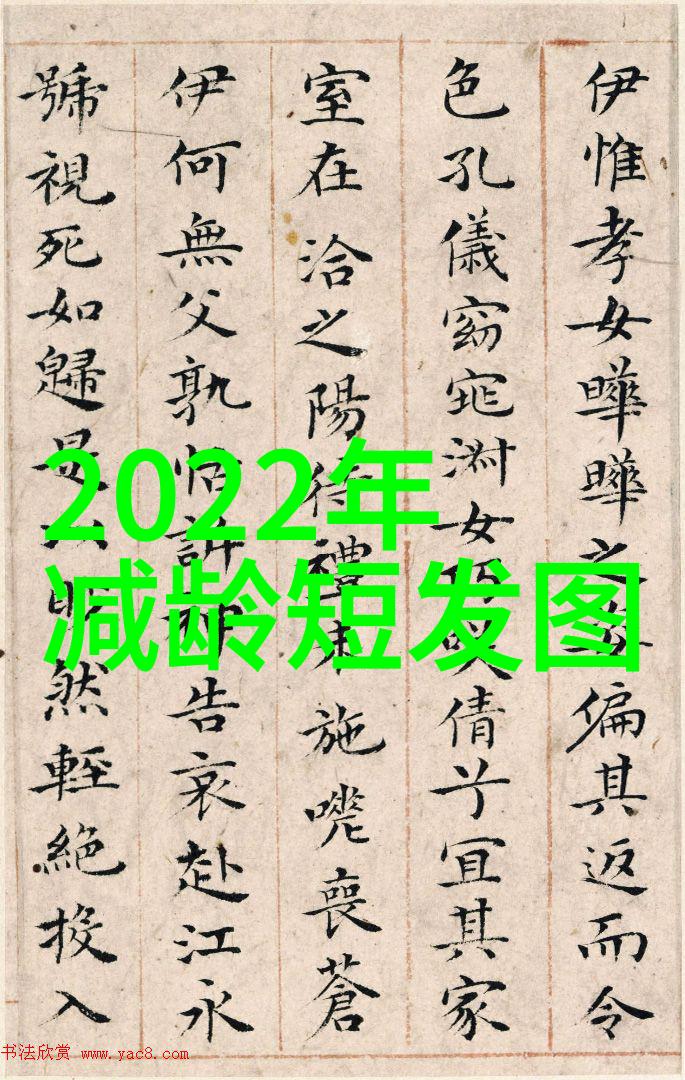 伊惟孝女曄曄之姿偏其返而令
色孔儀窈窕淑女巧笑倩兮宜其家
室在洽之陽待禮未施嗟喪蒼
伊何無父孰怙訴神告哀赴江永
號視死如歸是以眇然輕絕投入
2022年
减龄短发图
书法欣赏 www.yac8.com